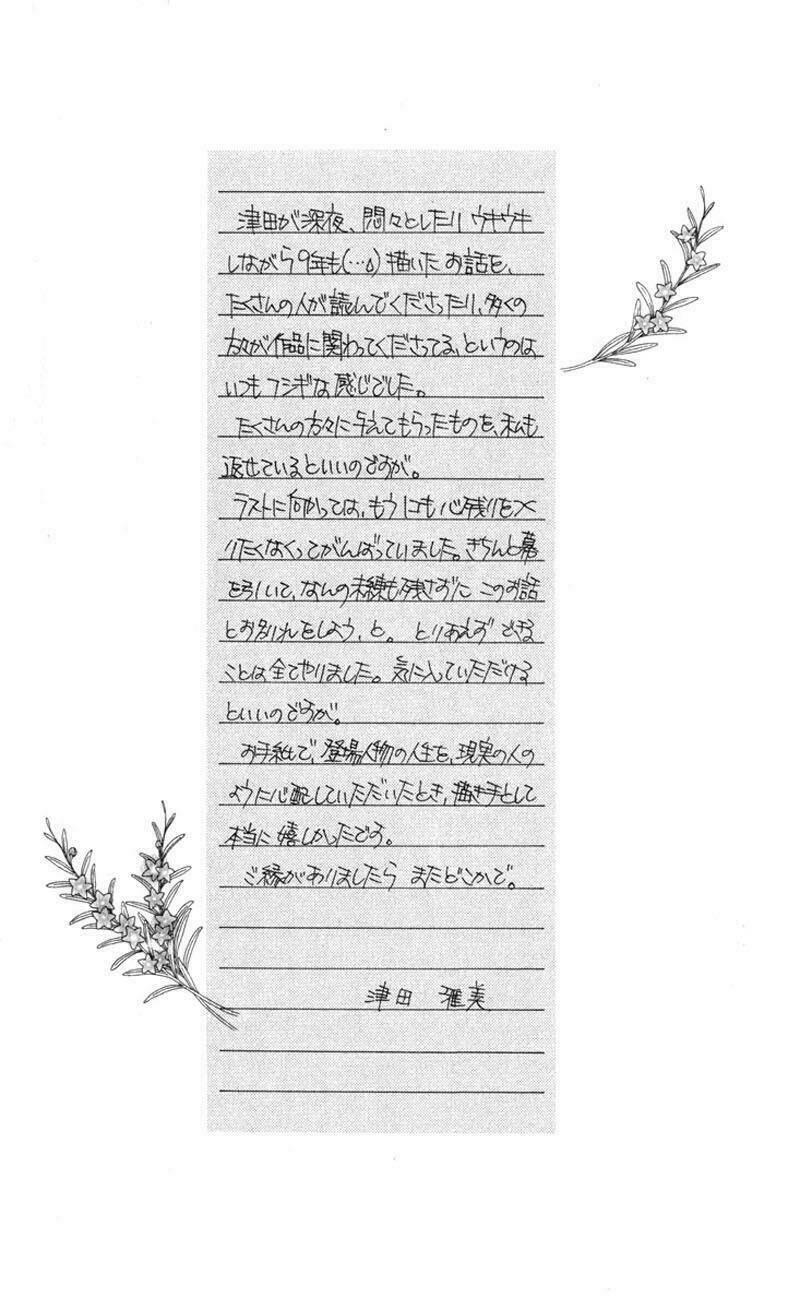 津田が深夜、悶々としたり ウキウキ
しながら9年も(…△)描いた お話を、
たくさんの人が読んでくださったり、多くの
方々が作品に関わってくださってる、というのは
いつも フシギな感じでした。
たくさんの方々に与えてもらったものを、私も
返せているといいのですが。
ラストに向かっては、もう にも心残りをつく
りたくなくってがんばっていました。きちんと幕
を引いて、なんの未練も残さずに このお話
とお別れをしよう、と。 とりあえず できる
ことは全てやりました。気に入っていただける
といいのですが。
お手紙で、登場人物の人生を、現実の人の
ように心配していただいたとき、描き手として
本当に 嬉しかったです。
ご縁がありましたら またどこかで。
津田 雅美